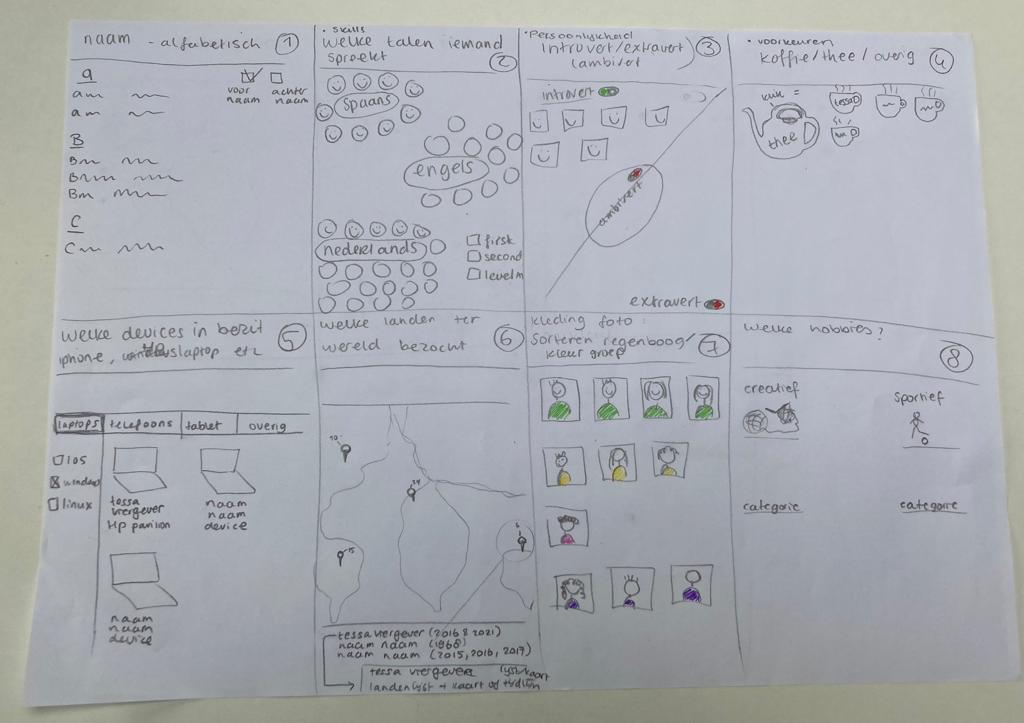 naam - alfabetisch 1
a
am
am
B
Bm
Bmm
Bm
C
Cm
voor naam
achter naam
• skills
welke talen iemand
spreekt
2
spaans
engels
nederlands
first
second
level m
• Persoonlijkheid
introvert/extravert/
(ambivert)
3
introvert
ambivert
extravert
• voorkeuren
koffie/thee/overig 4
thee
tessa
welke devices in bezit
iphone, laptop etc
5
laptops telefoons tablet overig
ios
windows
linux
tessa
vergever
Hp pavilion
naam
naam
device
naam
naam
device
welke landen ter
wereld bezocht
6
10
24
15
6
tessa vergever (2016 & 2021)
naam naam (1968)
naam naam (2015, 2016, 2017)
tessa vergever
landenlijst + kaart of tijdlijn
kleding foto:
sorteren regenboog/
kleur groep
7
welke hobbies?
8
creatief
sportief
categorie
categorie